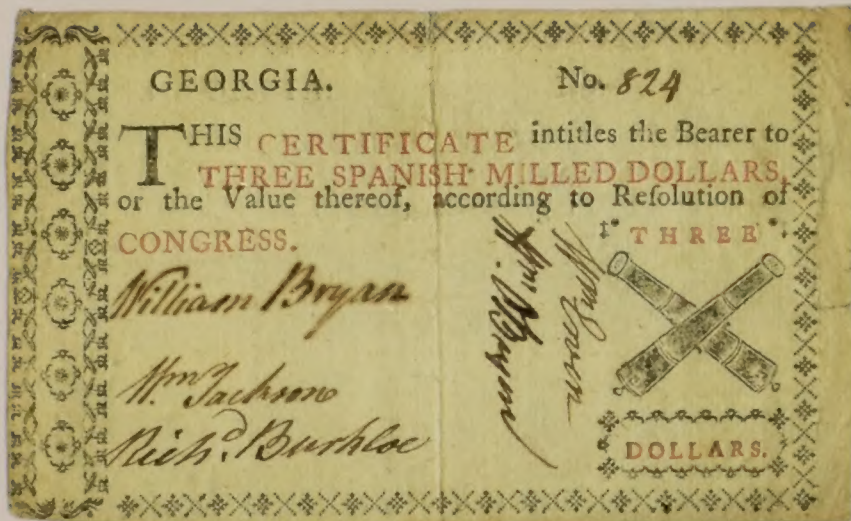 GEORGIA. No. 824
THIS CERTIFICATE intitles the Bearer to
THREE SPANISH MILLED DOLLARS,
or the Value thereof, according to Reſolution of
CONGRESS.
THREE
William Bryan
Wm Jackson
Richd.
DOLLARS.